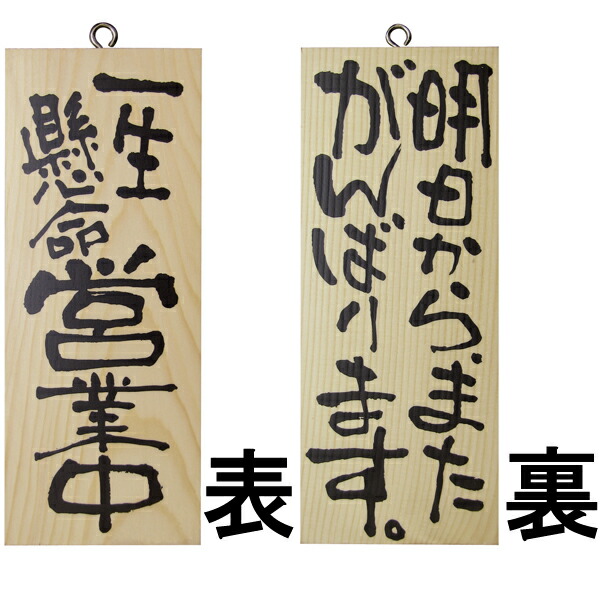 一生
懸命
営業中
表
明日から、また
がんばります。
裏